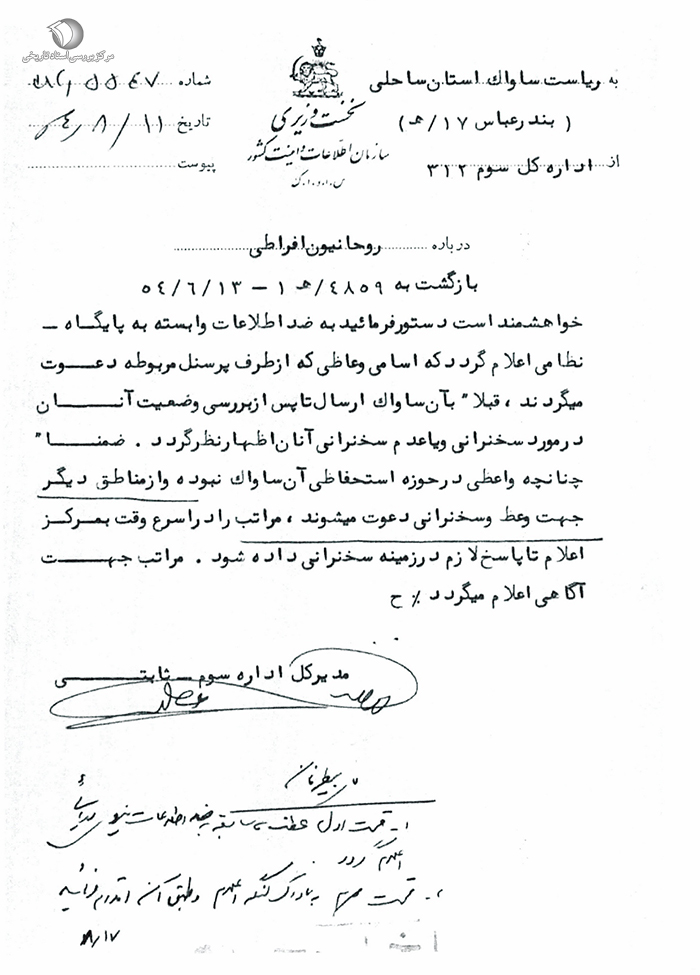 مرکز بررسی اسناد تاریخی
به ریاست ساواک استان ساحلی
( بندرعباس ۱۷/هـ )
از اداره کل سوم ۳۱۲
نخست وزیری
سازمان اطلاعات و امنیت کشور
س.ا.و.ا.ک
شماره
تاریخ ۱۱/۸/
پیوست
درباره روحانیون افراطی
بازگشت به ۴۸۵۹/هـ ۱ - ۵۴/۶/۱۳
خواهشمند است دستور فرمائید به ضد اطلاعات وابسته به پایگاه -
نظامی اعلام گردد که اسامی وعاظی که از طرف پرسنل مربوطه دعوت
میگردند ، قبلا" بآن ساواک ارسال تا پس از بررسی وضعیت آنان
در مورد سخنرانی و یا عدم سخنرانی آنان اظهار نظر گردد . ضمنا"
چنانچه واعظی در حوزه استحفاظی آن ساواک نبوده و از مناطق دیگر
جهت وعظ و سخنرانی دعوت میشوند ، مراتب را در اسرع وقت بمرکز
اعلام تا پاسخ لازم در زمینه سخنرانی داده شود . مراتب جهت
آگاهی اعلام میگردد ٪ ح
مدیر کل اداره سوم - ثابتی
۱- قسمت اول عطف به سابقه به ضد اطلاعات نیروی دریائی
اعلام گردد
۲- قسمت اعلام و طبق آن اقدام فرمائید
۸/۱۷